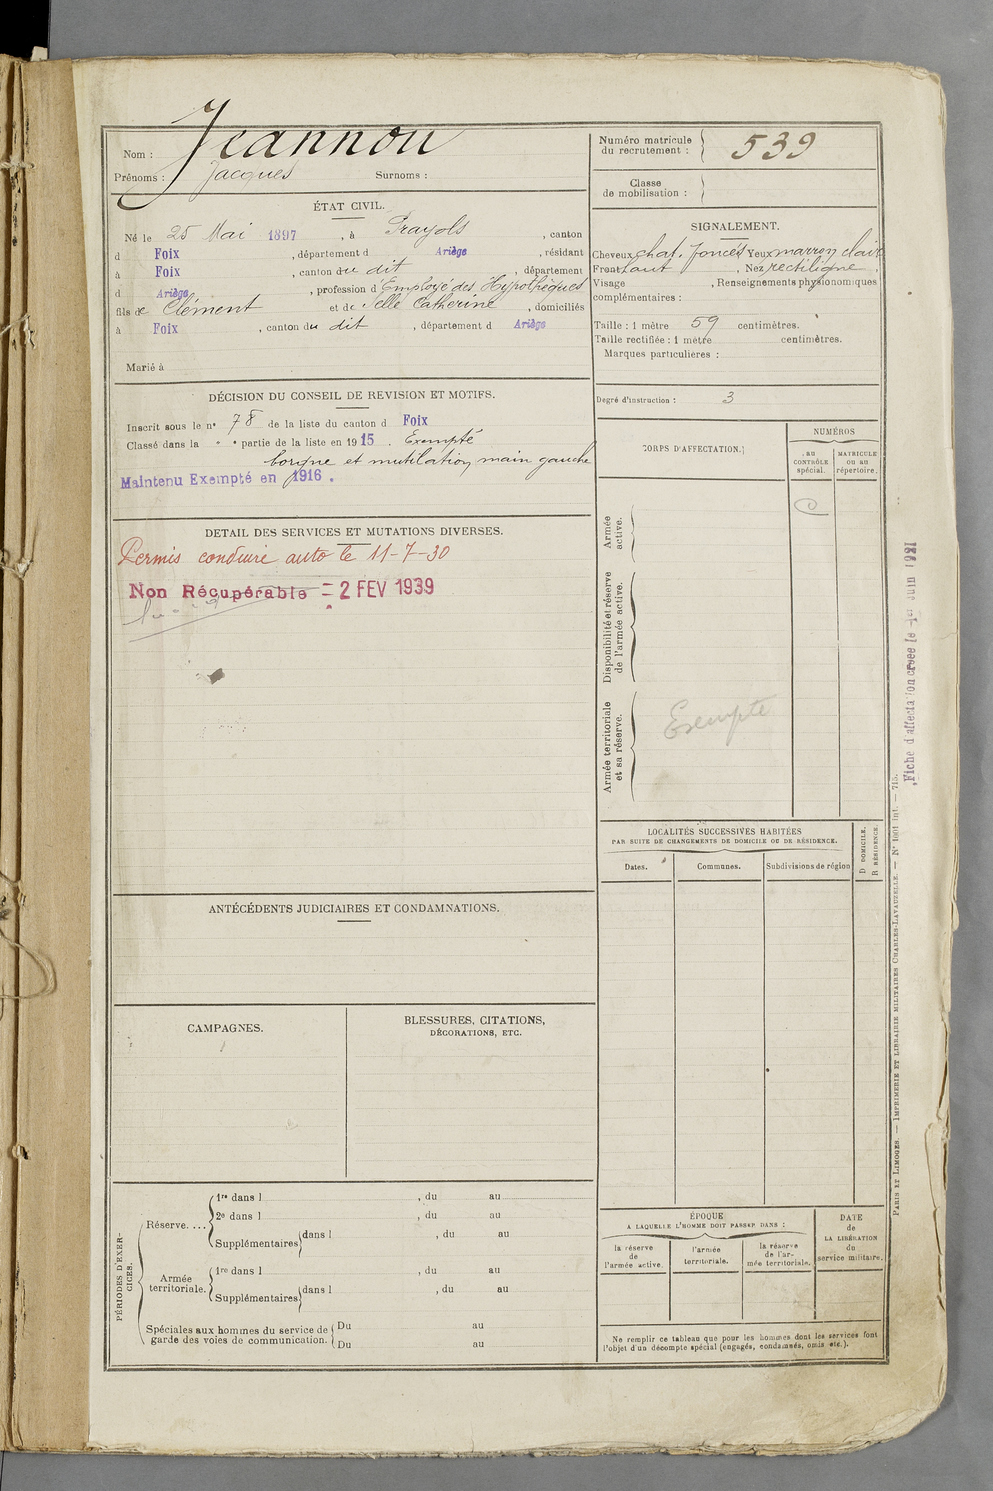 Nom : Jeannou
Prénoms : Jacques Surnoms :
Numéro matricule du recrutement : 539
Classe de mobilisation :
ÉTAT CIVIL.
Né le 25 Mai 1897, à Prayols, canton
d Foix, département d Ariège, résidant
à Foix, canton du dit, département
d Ariège, profession d'Employé des Hypothèques
fils de Clément et de Selle Catherine, domiciliés
à Foix, canton du dit, département d Ariège
Marié à
SIGNALEMENT.
Cheveux chat. foncés Yeux marron clair
Front haut, Nez rectiligne,
Visage , Renseignements physionomiques
complémentaires :
Taille : 1 mètre 59 centimètres.
Taille rectifiée : 1 mètre centimètres.
Marques particulières :
Degré d'instruction : 3
DÉCISION DU CONSEIL DE REVISION ET MOTIFS.
Inscrit sous le n° 78 de la liste du canton d Foix
Classé dans la " " partie de la liste en 1915. Exempté
borgne et mutilation main gauche
Maintenu Exempté en 1916.
CORPS D'AFFECTATION.
NUMÉROS
au CONTRÔLE spécial.
MATRICULE ou au répertoire.
Armée active.
Disponibilité et réserve de l'armée active.
Armée territoriale et sa réserve.
Exempté
DETAIL DES SERVICES ET MUTATIONS DIVERSES.
Permis conduire auto le 11-7-30
Non Récupérable = 2 FEV 1939
LOCALITÉS SUCCESSIVES HABITÉES
PAR SUITE DE CHANGEMENTS DE DOMICILE OU DE RÉSIDENCE.
Dates. Communes. Subdivisions de région
D DOMICILE.
R RÉSIDENCE.
ANTÉCÉDENTS JUDICIAIRES ET CONDAMNATIONS.
CAMPAGNES.
BLESSURES, CITATIONS,
DÉCORATIONS, ETC.
PÉRIODES D'EXERCICES.
Réserve. ...
1re dans l , du au
2e dans l , du au
Supplémentaires dans l , du au
Armée territoriale.
1re dans l , du au
Supplémentaires dans l , du au
Spéciales aux hommes du service de garde des voies de communication.
Du au
Du au
ÉPOQUE
A LAQUELLE L'HOMME DOIT PASSER DANS :
la réserve de l'armée active.
l'armée territoriale.
la réserve de l'armée territoriale.
DATE de LA LIBÉRATION du service militaire.
Ne remplir ce tableau que pour les hommes dont les services font
l'objet d'un décompte spécial (engagés, condamnés, omis etc.).
PARIS ET LIMOGES. — IMPRIMERIE ET LIBRAIRIE MILITAIRES CHARLES-LAVAUZELLE. — N° 1001 int. — 715.
Fiche d'affectation créée le 1er Juin 1921